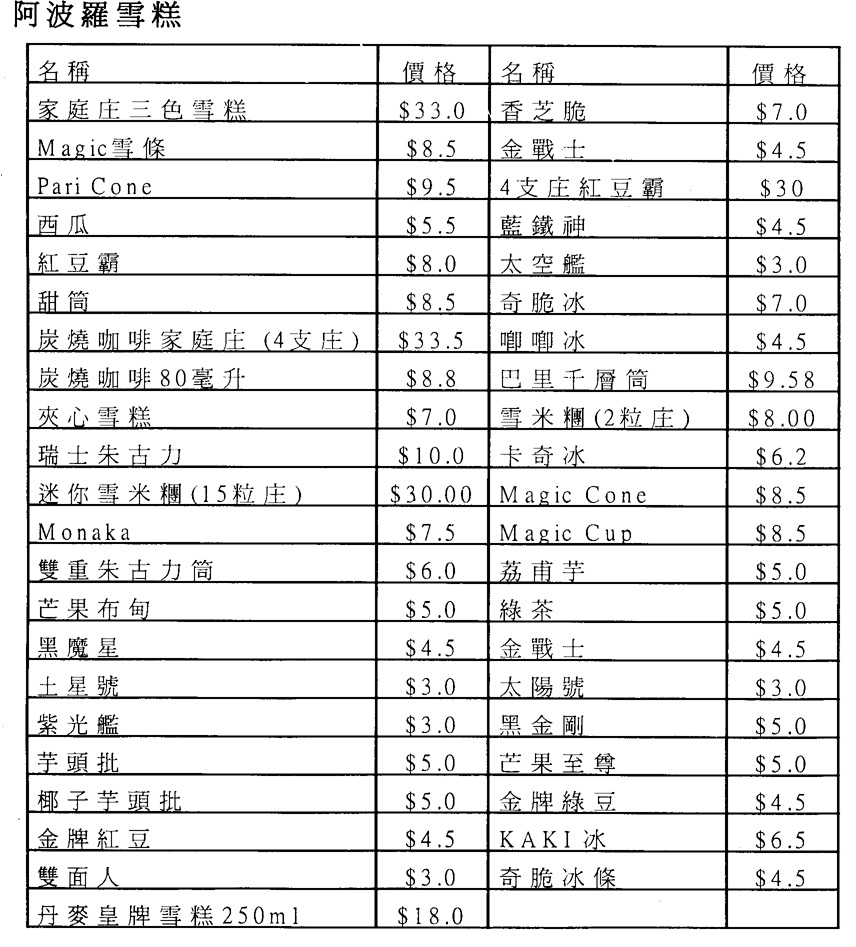 阿波羅雪糕
名稱 價格 名稱 價格
家庭庄三色雪糕 $33.0 香芝脆 $7.0
Magic雪條 $8.5 金戰士 $4.5
Pari Cone $9.5 4支庄紅豆霸 $30
西瓜 $5.5 藍鐵神 $4.5
紅豆霸 $8.0 太空艦 $3.0
甜筒 $8.5 奇脆冰 $7.0
炭燒咖啡家庭庄 (4支庄) $33.5 唧唧冰 $4.5
炭燒咖啡80毫升 $8.8 巴里千層筒 $9.58
夾心雪糕 $7.0 雪米糰(2粒庄) $8.00
瑞士朱古力 $10.0 卡奇冰 $6.2
迷你雪米糰(15粒庄) $30.00 Magic Cone $8.5
Monaka $7.5 Magic Cup $8.5
雙重朱古力筒 $6.0 荔甫芋 $5.0
芒果布甸 $5.0 綠茶 $5.0
黑魔星 $4.5 金戰士 $4.5
土星號 $3.0 太陽號 $3.0
紫光艦 $3.0 黑金剛 $5.0
芋頭批 $5.0 芒果至尊 $5.0
椰子芋頭批 $5.0 金牌綠豆 $4.5
金牌紅豆 $4.5 KAKI冰 $6.5
雙面人 $3.0 奇脆冰條 $4.5
丹麥皇牌雪糕250ml $18.0